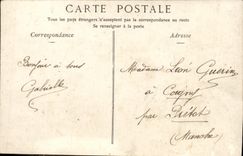 CARTE POSTALE
Tous les pays étrangers n'acceptent pas la correspondance au recto
Se renseigner à la poste
Correspondance
Adresse
Bonjour à tous
Gabrielle
Madame Léon Guerin
à
par Prétot
(Manche)